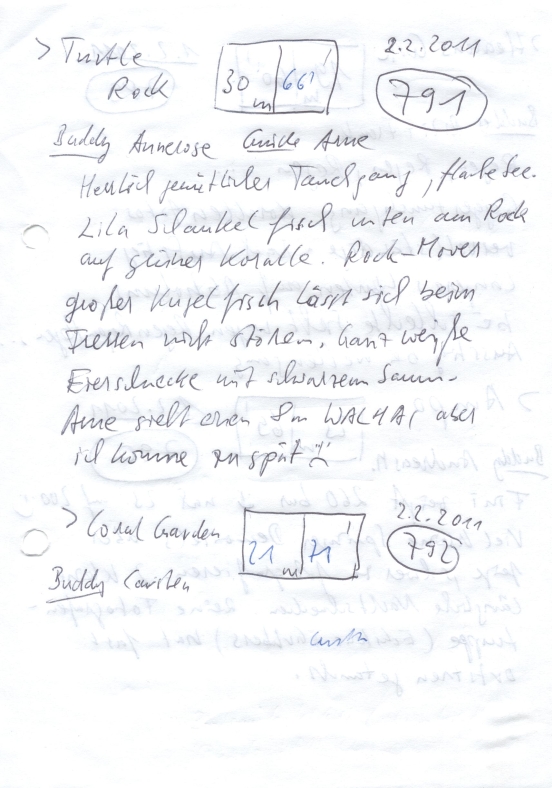 > Turtle Rock 30 m 66' 2.2.2011
791
Buddy Annelose Guide Arne
Herrlich gemütlicher Tauchgang, flache See.
Lila Schaukelfisch unten am Rock
auf grüner Koralle. Rock-Mover
großer Kugelfisch lässt sich beim
Fressen nicht stören. Ganz weiße
Eierschnecke mit schwarzem Saum.
Arne sieht einen 8m WALHAI aber
ich komme zu spät :(
> Coral Garden 21 m 71' 2.2.2011
792
Buddy Carsten